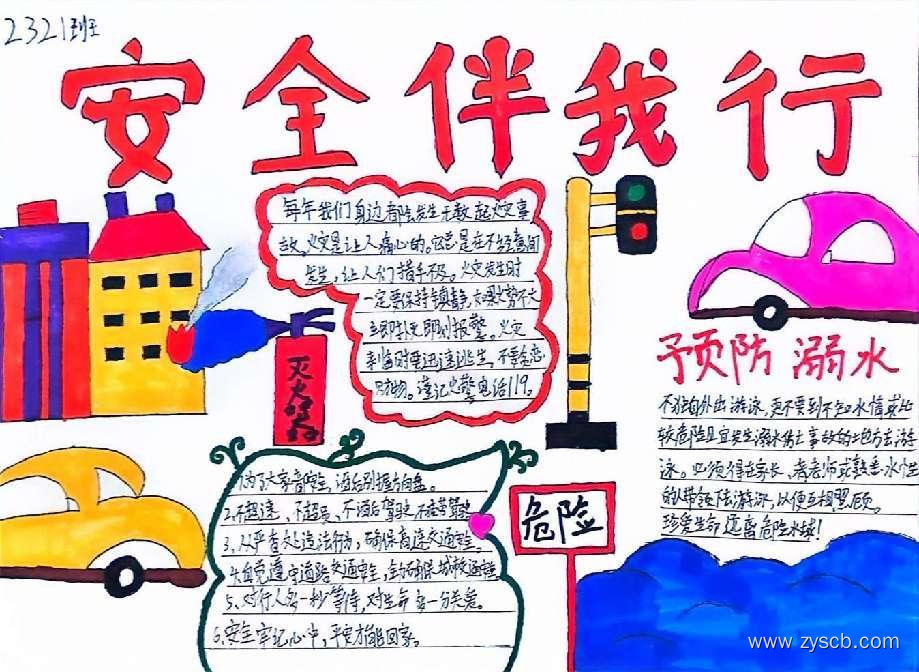 2321班
安全伴我行
每年我们身边都会发生无数起火灾事
故,火灾是让人痛心的。它总是在不经意间
发生,让人们措手不及。火灾发生时
一定要保持镇静,如果火势不大
立即扑灭,即刻报警。火灾
来临时要迅速逃生,不要贪恋
财物。谨记火警电话119。
灭火器
预防溺水
不独自外出游泳,更不要到不知水情或比
较危险且宜发生溺水伤亡事故的地方去游
泳。必须得在家长、老师或熟悉水性
的人带领下去游泳,以便互相照顾。
珍爱生命 远离危险水域!
危险
1、为了大家音响生,酒后别握方向盘。
2、不超速、不超员、不酒后驾驶、不疲劳驾驶
3、从严查处违法行为,确保高速交通安全。
4、自觉遵守道路交通安全,全力确保城校通安全
5、对行人多一秒等待,对生命多一分关爱。
6、安全牢记心中,平安才能回家。
www.zyscb.com